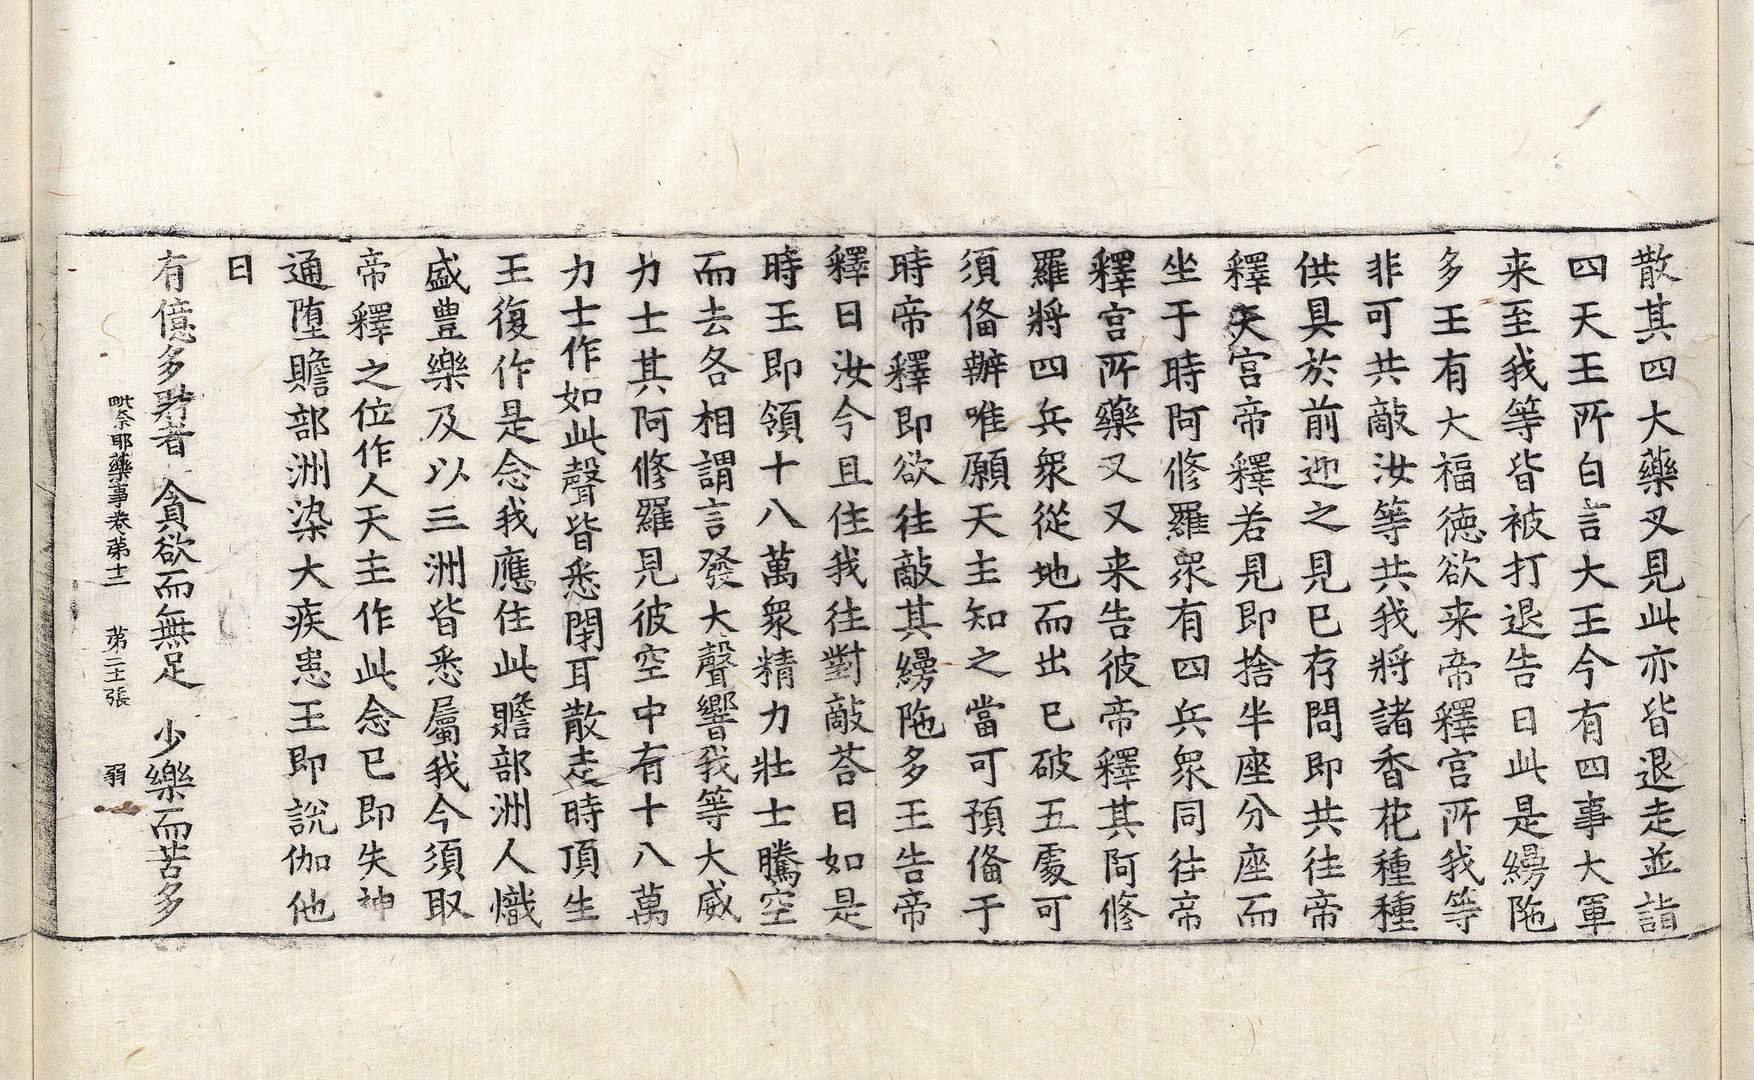 散其四大藥叉見此亦皆退走並詣
四天王所白言大王今有四事大軍
来至我等皆被打退告曰此是縵陁
多王有大福徳欲来帝釋宮所我等
非可共敵汝等共我將諸香花種種
供具於前迎之見已存問即共往帝
釋天宮帝釋若見即捨半座分座而
坐于時阿修羅衆有四兵衆同往帝
釋宮所藥叉又来告彼帝釋其阿修
羅將四兵衆從地而出已破五處可
須俻辦唯願天主知之當可預俻于
時帝釋即欲往敵其縵陁多王告帝
釋曰汝今且住我往對敵荅曰如是
時王即領十八萬衆精力壯士騰空
而去各相謂言發大聲響我等大威
力士其阿修羅見彼空中有十八萬
力士作如此聲皆悉閇耳散走時頂生
王復作是念我應住此贍部洲人熾
盛豊樂及以三洲皆悉屬我今須取
帝釋之位作人天主作此念已即失神
通堕贍部洲染大疾患王即說伽他
曰
有億多貯者　貪欲而無足　少樂而苦多
毗奈耶藥事卷苐十二　苐二十張　弱